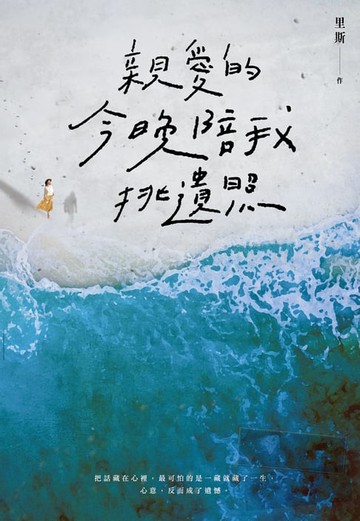 里斯——作
親愛的
今晚陪我
挑遺照
把話藏在心裡，最可怕的是一藏就藏了一生，
心意，反而成了遺憾。